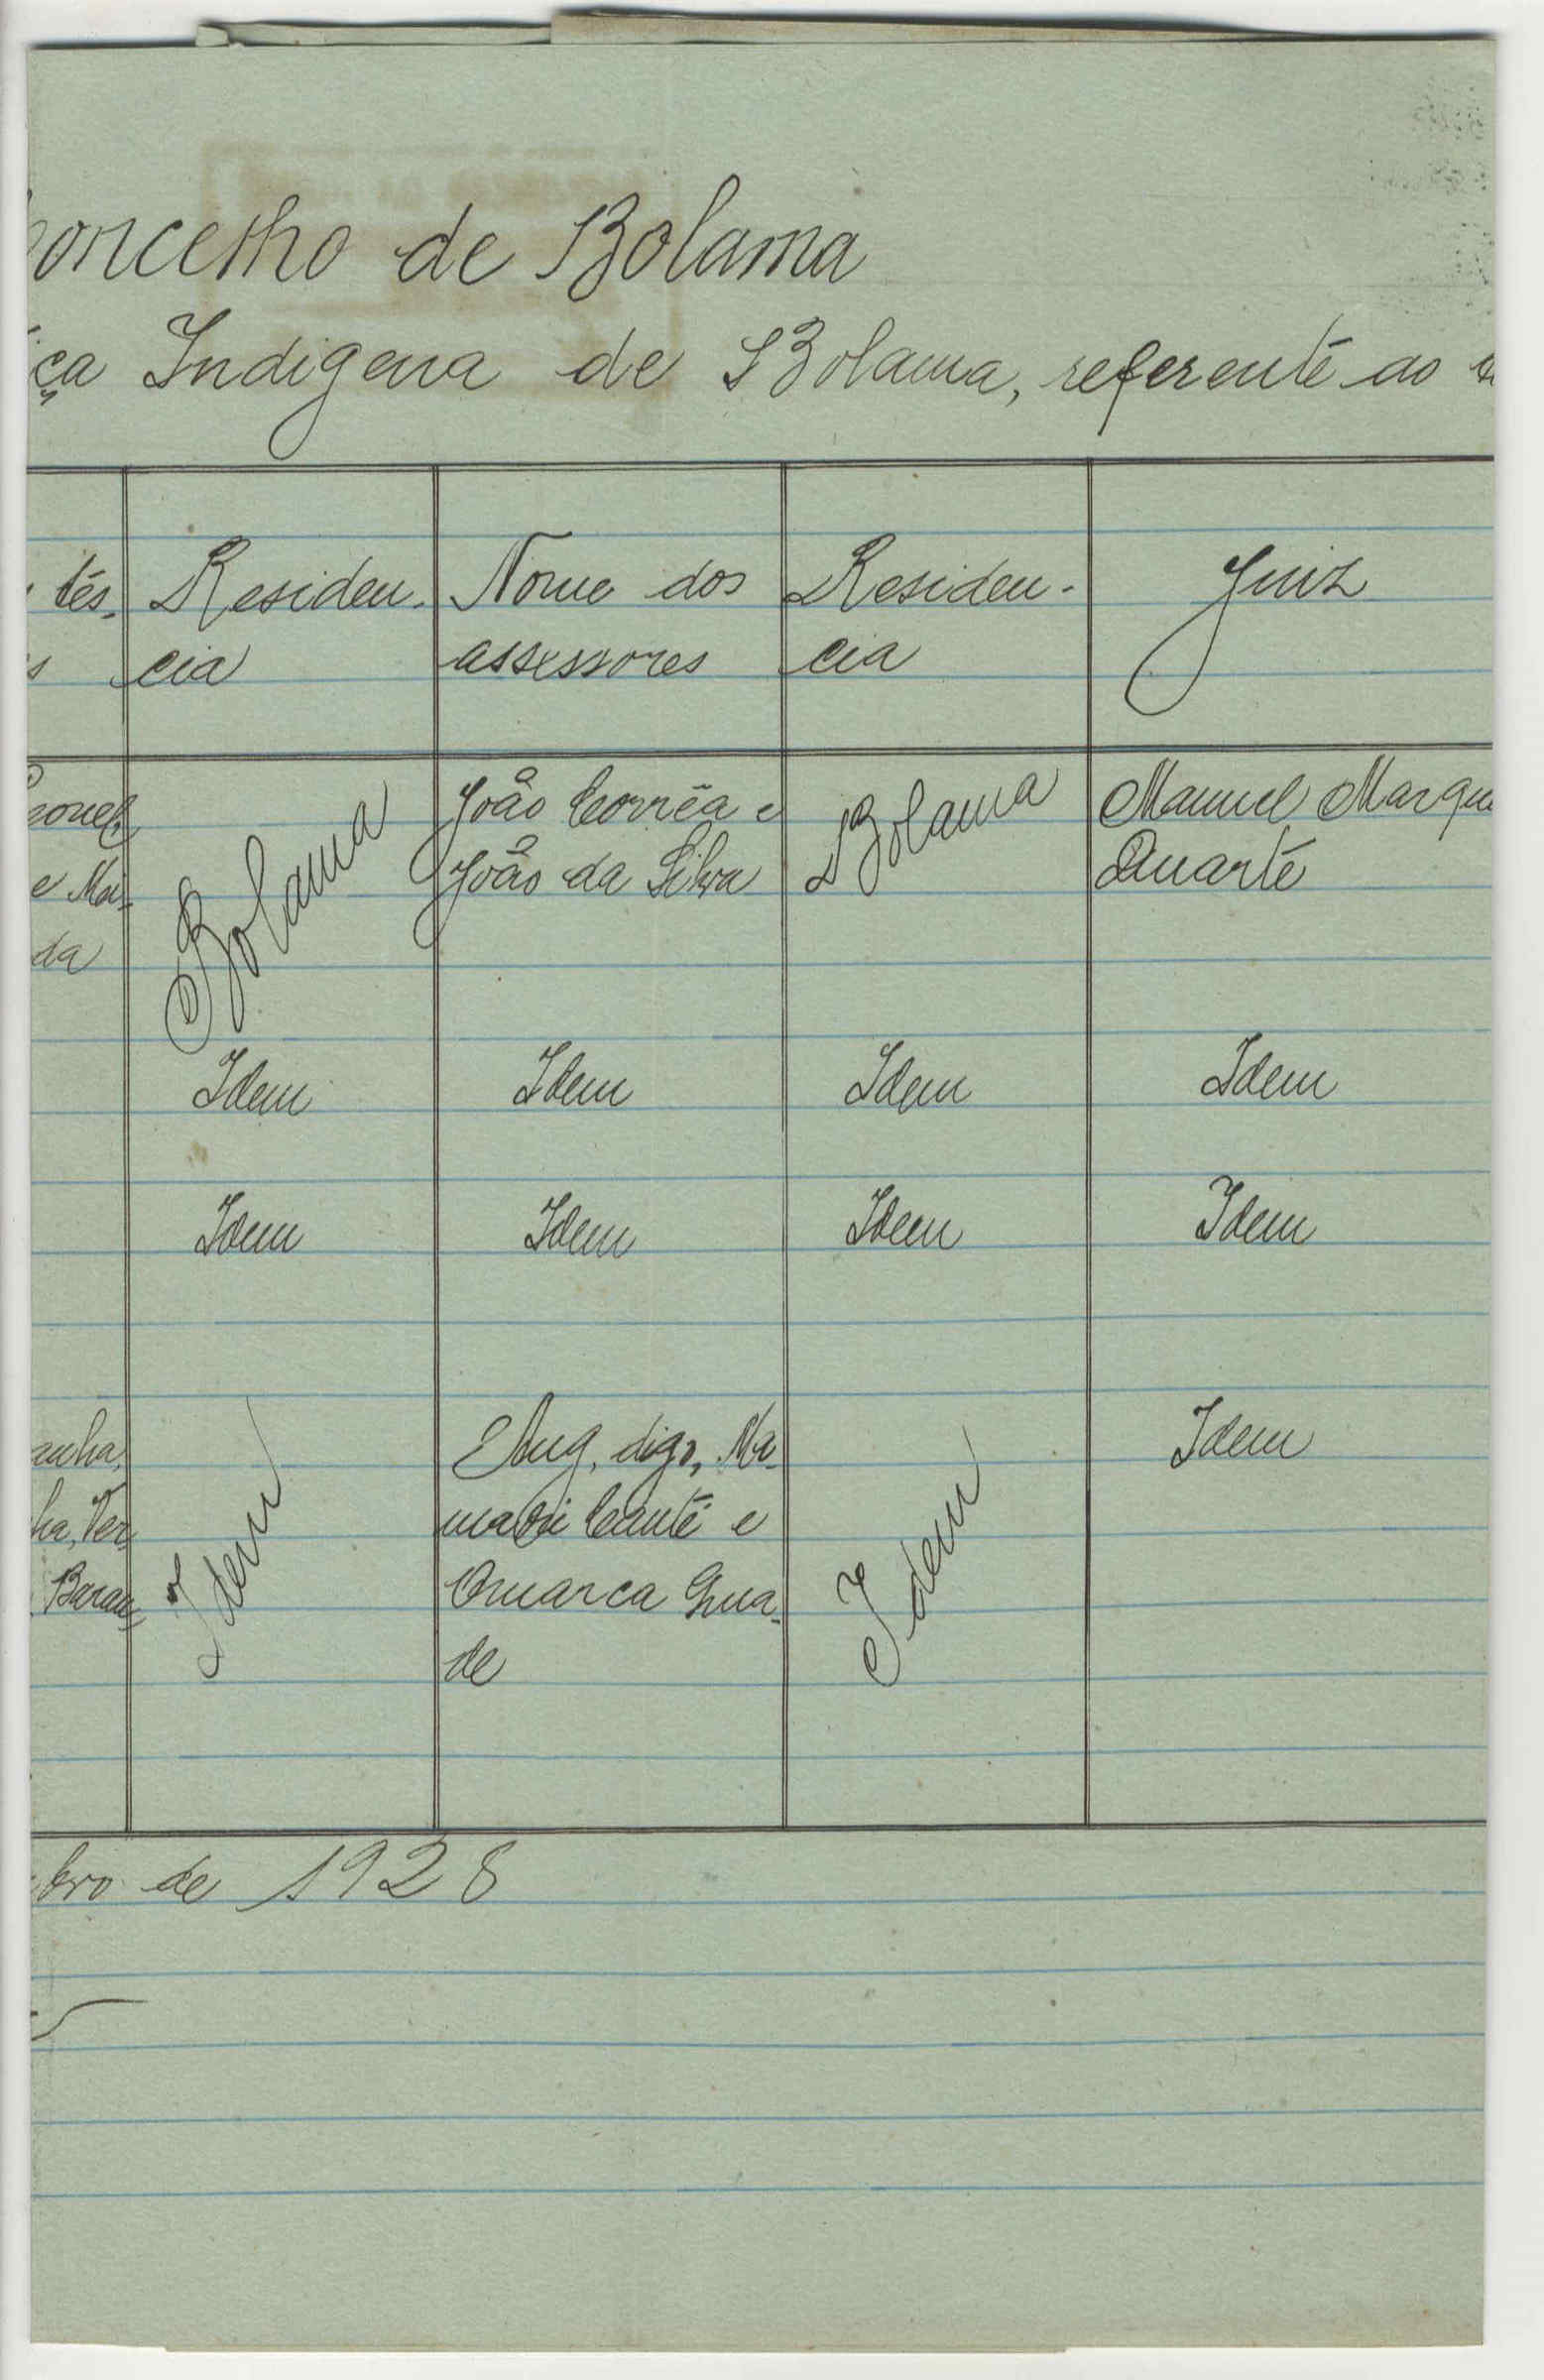 concelho de Bolama
ça Indigena de Bolama, referente ao
tés-
s
Residen-
cia
Nome dos
assessores
Residen-
cia
Juiz
e Ma-
da
Bolama
João Corrêa e
João da Silva
Bolama
Manuel Marqu
Duarte
Idem
Idem
Idem
Idem
Idem
Idem
Idem
Idem
anha,
ha, Ver
Baram
Idem
Aug, digo, Ma-
madi Canté e
Omarca Gua-
de
Idem
Idem
bro de 1928